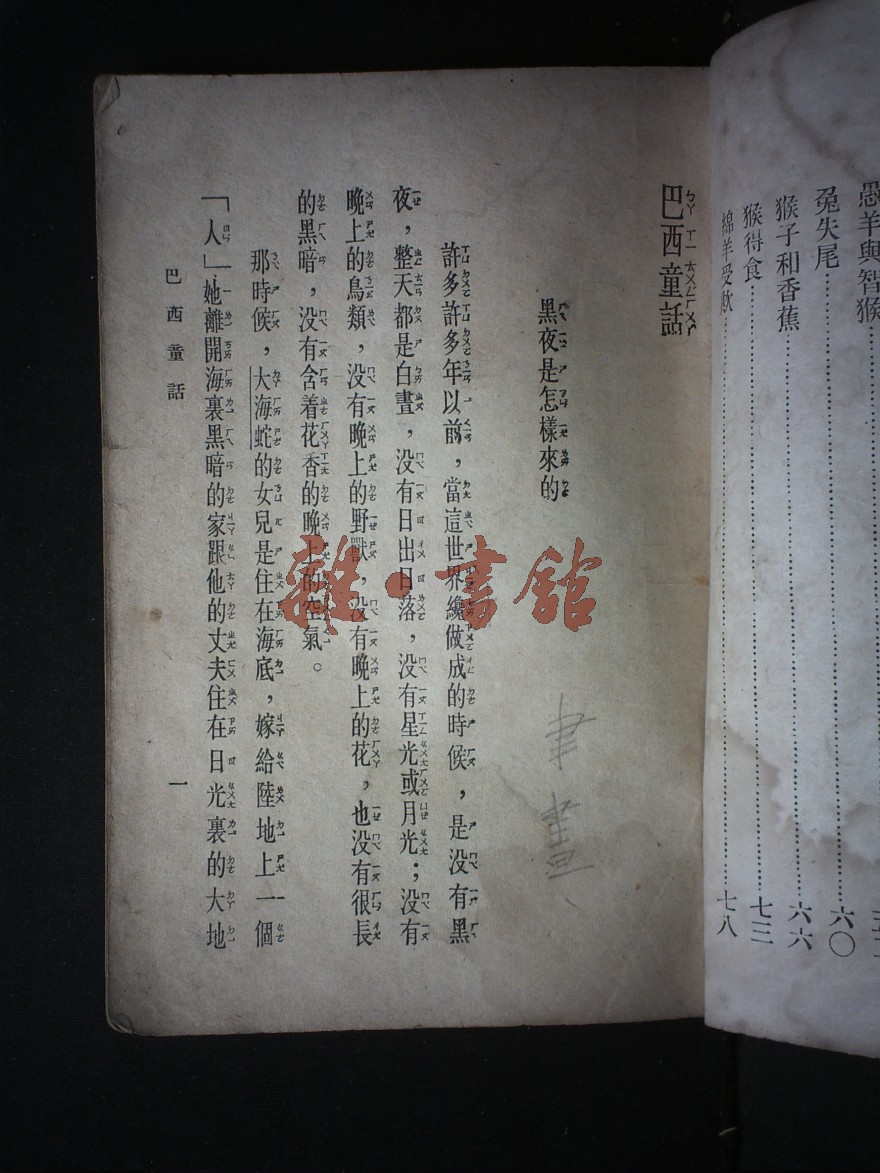 愚羊與智猴
兔失尾……六〇
猴子和香蕉……六六
猴得食……七三
綿羊受欺……七八
巴西童話
黑夜是怎樣來的
許多許多年以前，當這世界纔做成的時候，是没有黑
夜，整天都是白晝，没有日出日落，没有星光或月光；没有
晚上的鳥類，没有晚上的野獸，没有晚上的花，也没有很長
的黑暗，没有含着花香的晚上的空氣。
那時候，大海蛇的女兒是住在海底，嫁給陸地上一個
「人」她離開海裏黑暗的家跟他的丈夫住在日光裏的大地
巴西童話
一
雜·書館